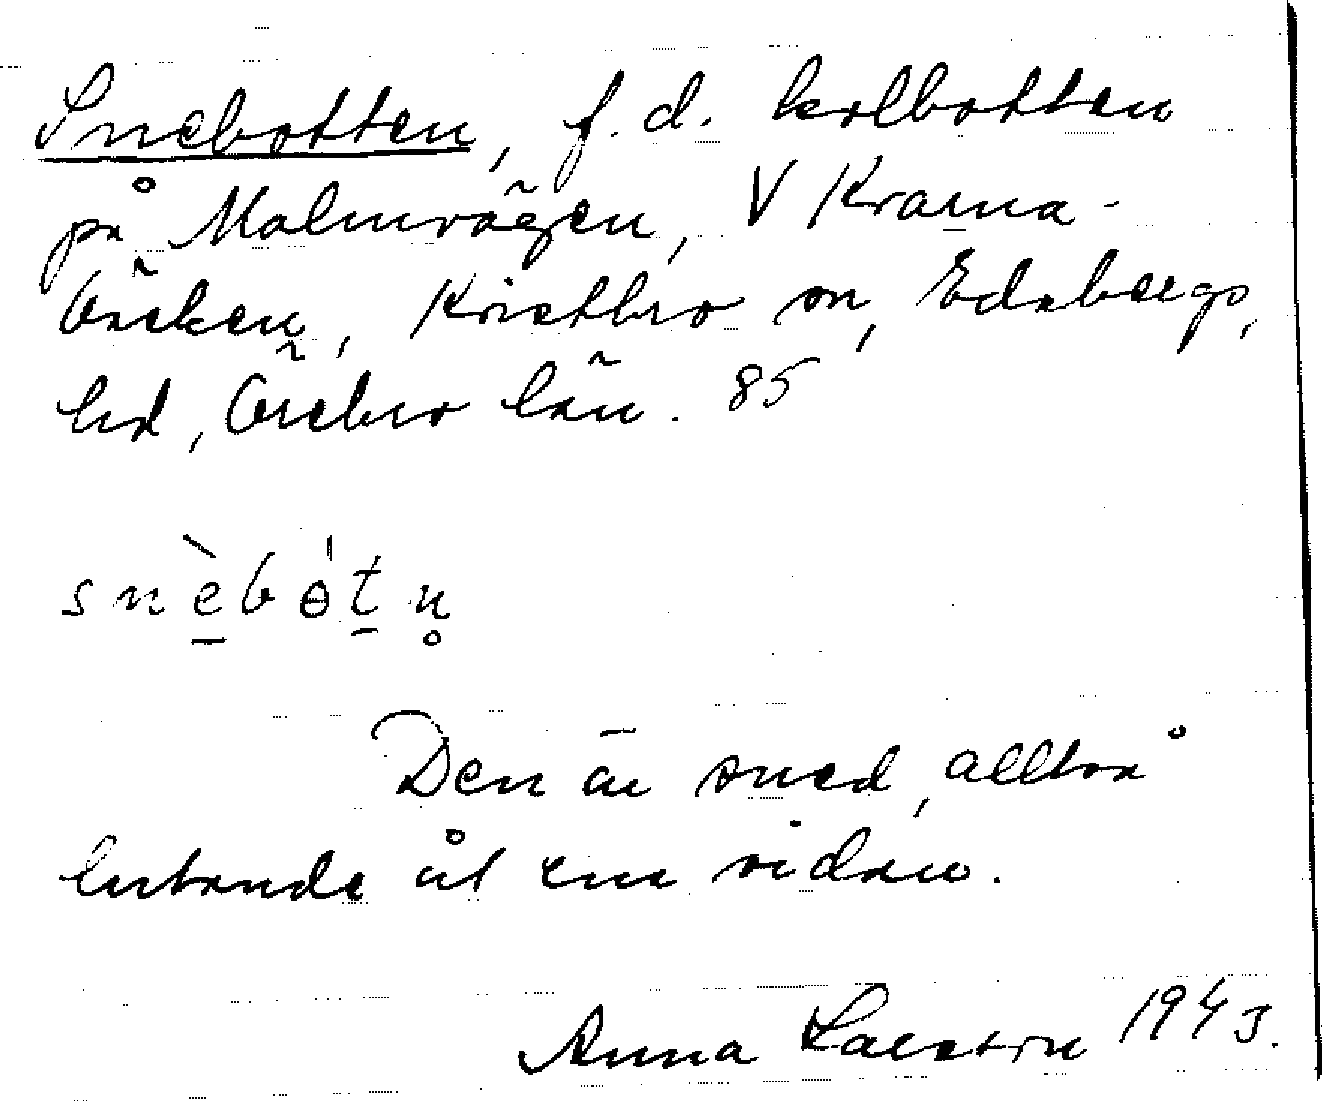 Snebotten, f.d. kolbotten
på Malmvägen, V Krama-
bäcken, Kristbro sn, Edsbergs,
hd, Örebro län. 85
snèbòtn̥
Den är sned, alltså
lutande åt ena sidan.
Anna Larsson 1943.